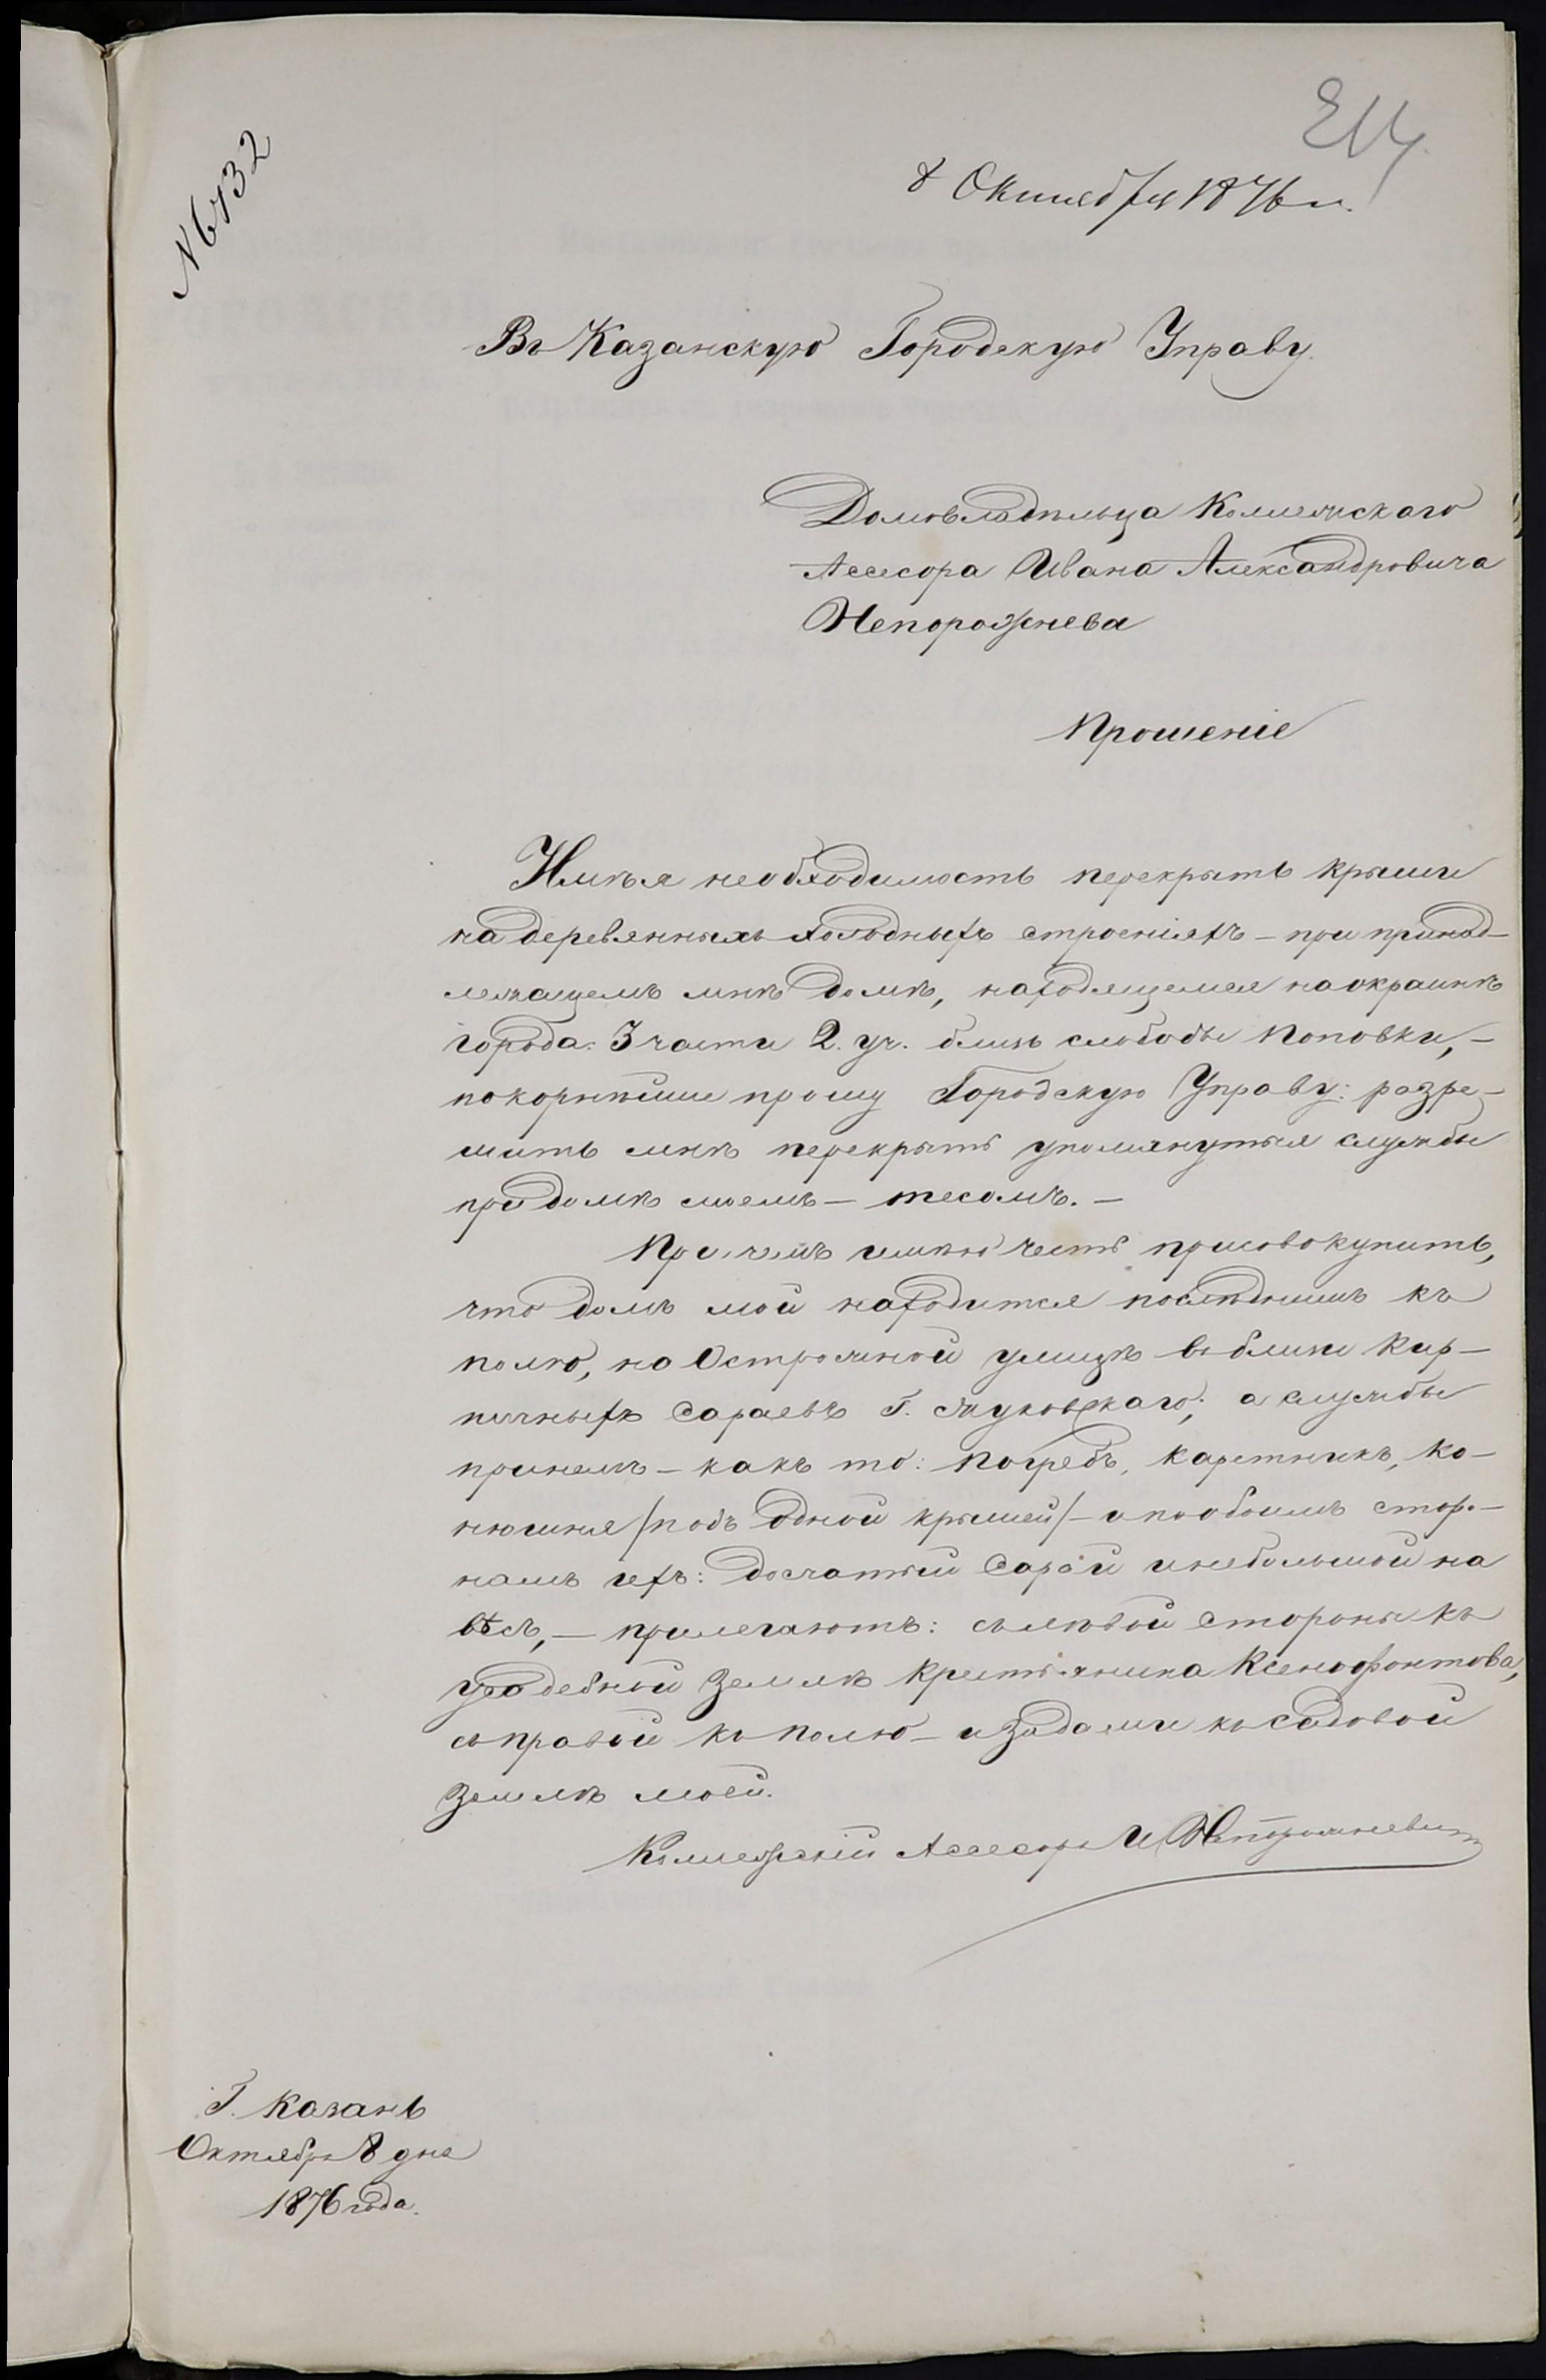 № 6732
8 Октября 1876 г.
Въ Казанскую Городскую Управу.
Домовладѣльца Коллежскаго
Асессора Ивана Александровича
Непорожнева
Прошеніе
Имѣя необходимость перекрыть крыши
на деревянныхъ холодныхъ строеніяхъ – при принад–
лежащемъ мнѣ домѣ, находящемся на окраинѣ
города: 3 части 2. уч. близь слободы Поповки, –
покорнѣйше прошу Городскую Управу: разре–
шить мнѣ перекрыть упомянутыя службы
при домѣ моемъ – тесомъ. –
При чемъ имѣю честь присовокупить,
что домъ мой находится послѣднимъ къ
полю, на Острожной улицѣ вблизи Кир–
пичныхъ Сараевъ Г. Жуковскаго; а службы
при немъ – какъ то: погребъ, каретникъ, ко–
нюшня /подъ одной крышей/ – и по обоимъ стор.–
намъ ихъ: досчатый Сарай и небольшой на
вѣсъ, – прилегаютъ: съ лѣвой стороны къ
усадебной землѣ крестьянина Ксенофонтова,
съ правой къ полю – и задами къ садовой
землѣ моей.
Коллежскій Асессоръ И Непорожневъ
Г. Казань
Октября 8 дня
1876 года.